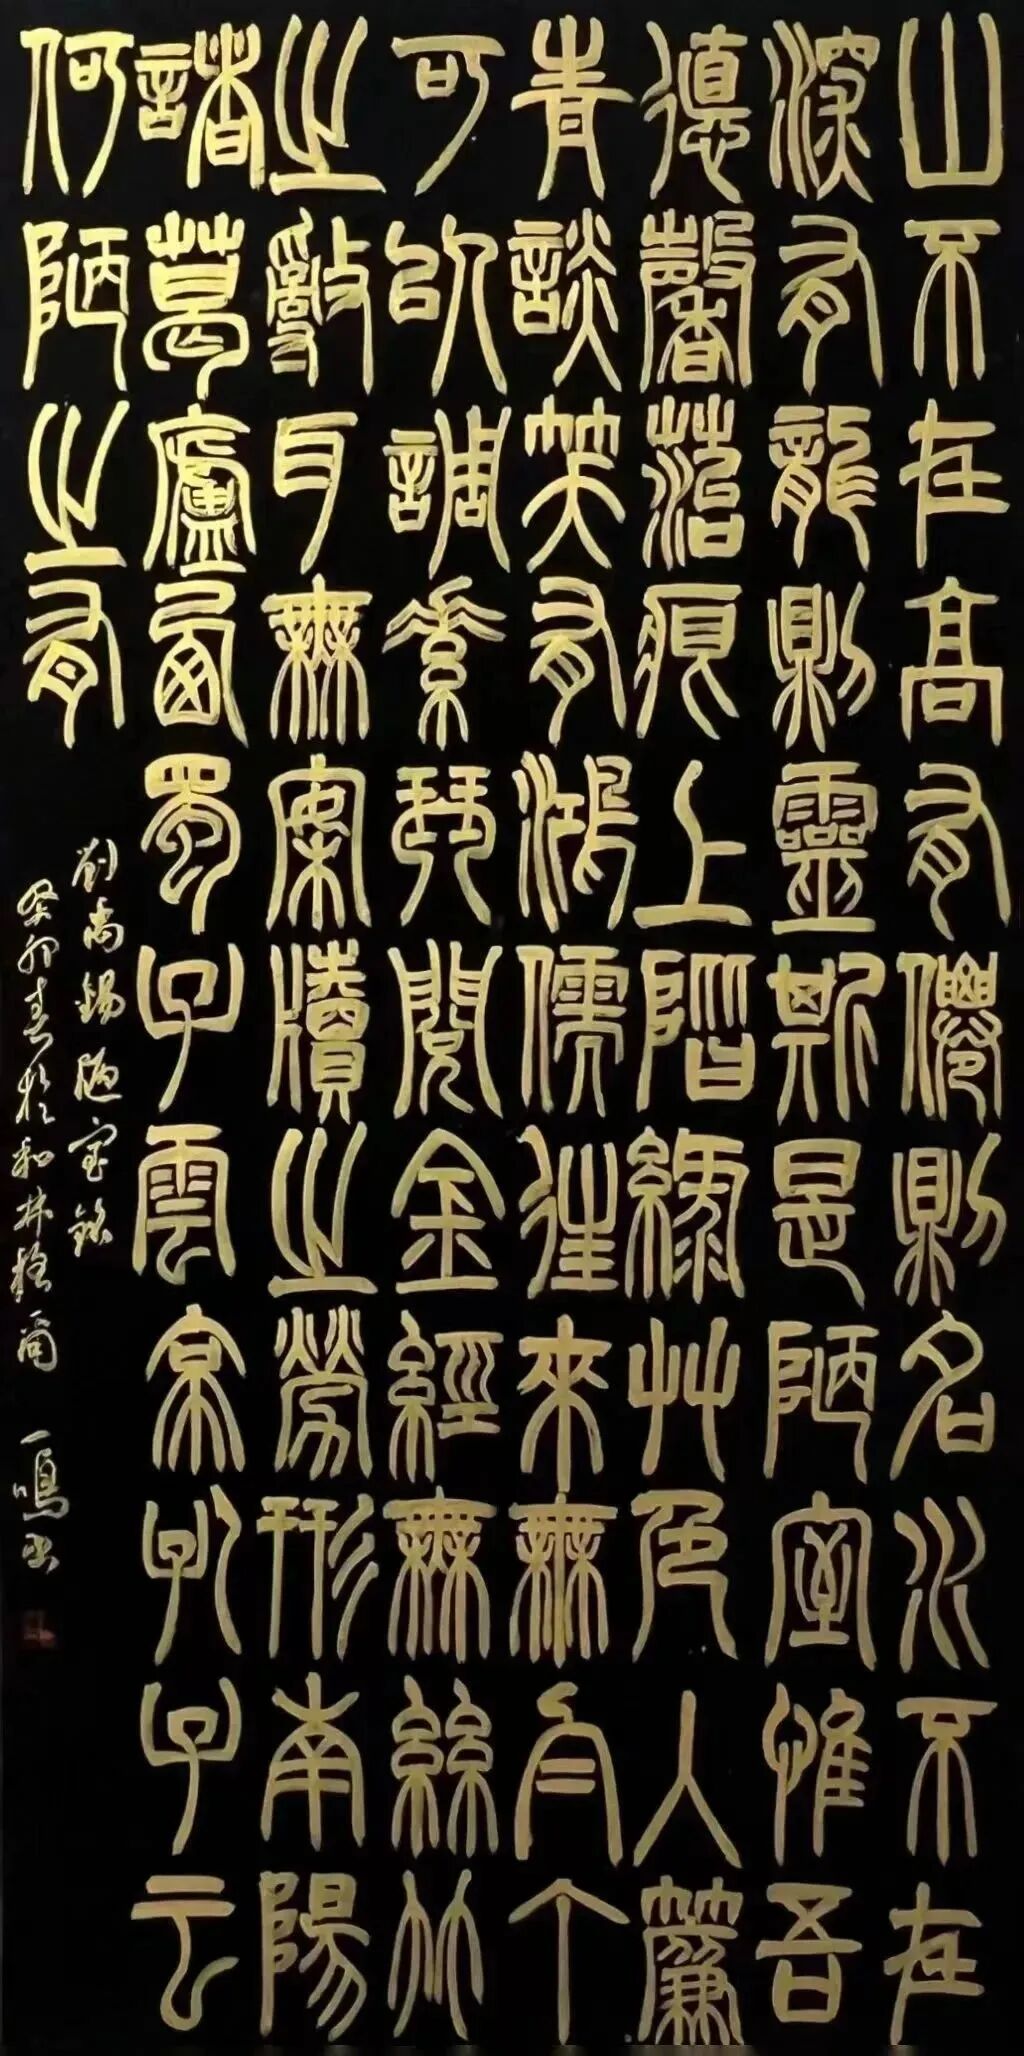 山不在高有僊則名水不在
深有龍則靈斯是陋室惟吾
德馨菭痕上階綠艸色入簾
青談笑有鴻儒往來無白丁
可以調素琴閱金經無絲竹
之亂耳無案牘之勞形南陽
諸葛廬西蜀子雲亭孔子云
何陋之有
劉禹錫陋室銘
癸卯春於和林格爾 一鳴書